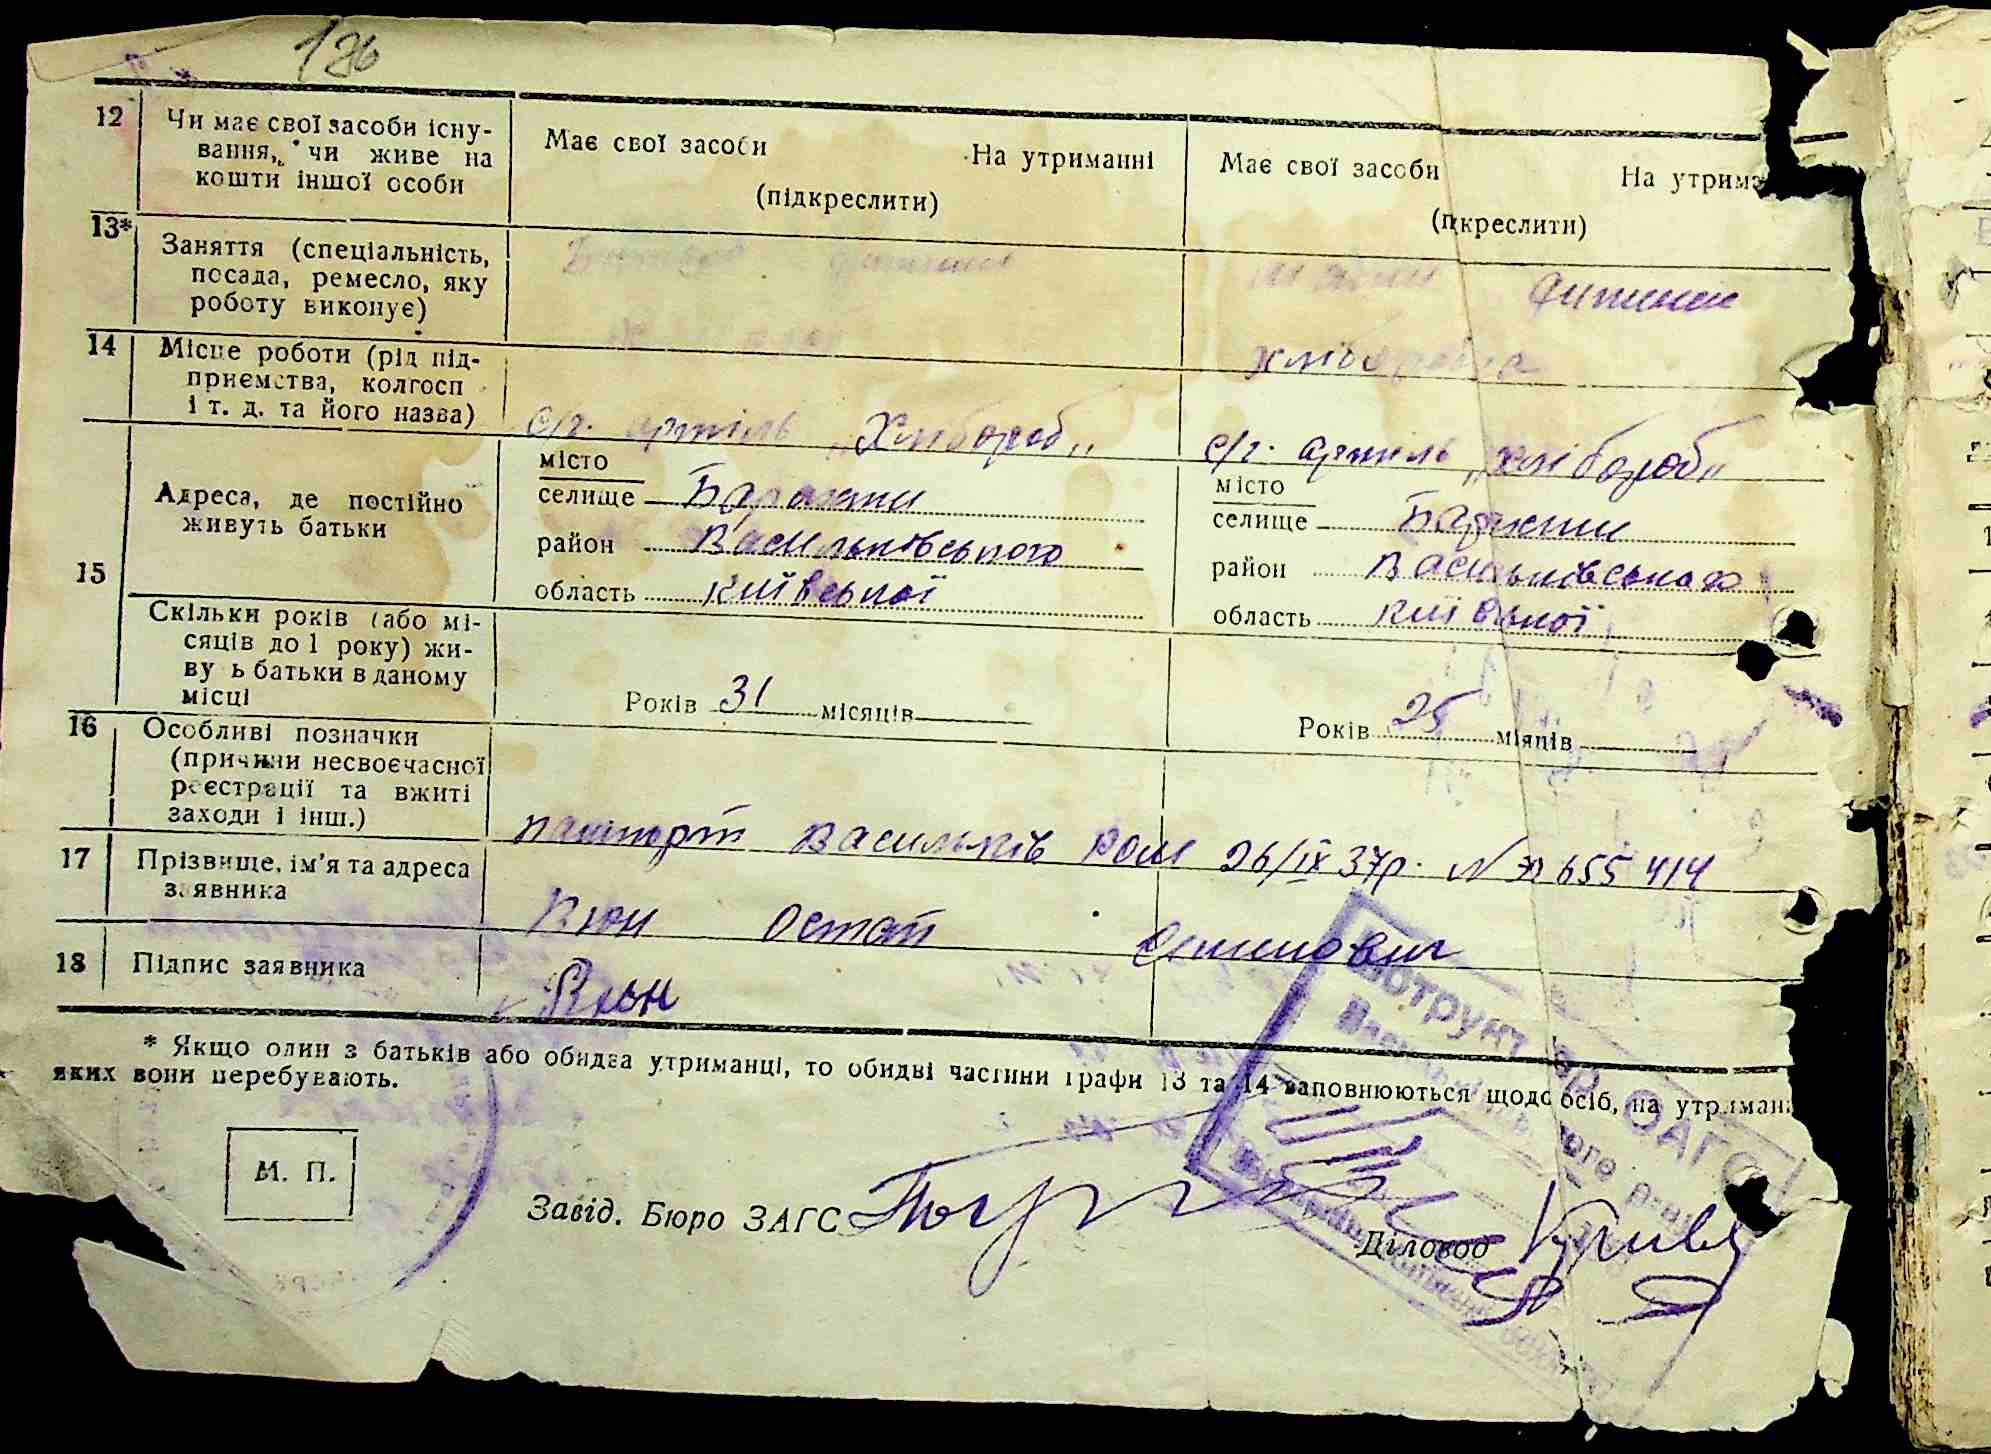 136
12 Чи має свої засоби існу-
вання, чи живе на
кошти іншої особи
Має свої засоби На утриманні
(підкреслити)
Має свої засоби На утрима
(пкреслити)
13* Заняття (спеціальність,
посада, ремесло, яку
роботу виконує)
Батько дитини
дитини
хлібороб
14 Місце роботи (рід під-
приємства, колгосп
і т. д. та його назва)
с/г. артіль „Хлібороб"
с/г. артиль „хлібороб"
15 Адреса, де постійно
живуть батьки
місто
селище Барахти
район Васильківського
область Київської
місто
селище Барахти
район Васильківського
область Київської
Скільки років (або мі-
сяців до 1 року) жи-
ву ь батьки в даному
місці
Років 31 місяців
Років 25 міяців
16 Особливі позначки
(причини несвоєчасної
реєстрації та вжиті
заходи і інш.)
паспорт Васильків РОМ 26/IX 37р. № 655 414
17 Прізвище, ім'я та адреса
заявника
Вюн Остап
18 Підпис заявника
Вьюн
* Якщо один з батьків або обидва утриманці, то обидві частини графи 13 та 14 заповнюються щодо осіб, на утриман
яких вони перебувають.
М. П.
Завід. Бюро ЗАГС
Діловод
ЗАГС